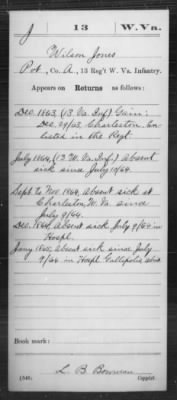 J 13 W.Va.
Wilson Jones
Pvt., Co. A, 13 Reg't W. Va. Infantry.
Appears on Returns as follows:
Dec. 1863, (13 Va. Inf.) Gain:
Dec. 29/63, Charleston, En-
listed in the Regt
July 1864, (13 W. Va. Inf.) Absent
sick since July
Sept. to Nov. 1864, Absent sick at
Charleston, W. Va. since
July 9/64.
Dec. 1864, Absent sick July 9/64 in
Hospl.
Jany 1865, Absent sick since July
9/64 in Hospl. Gallipolis Ohio
Book mark:
(546) L. B. Bowman
Copyist.